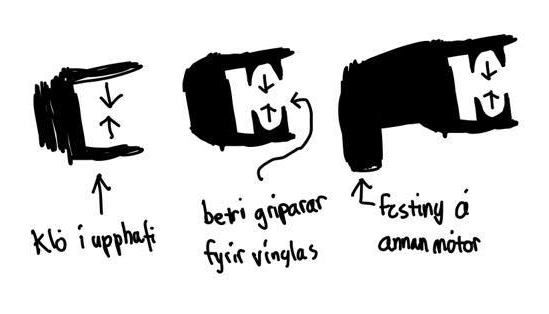 Kló í upphafi
betri griparar
fyrir vínglas
festing á
annan mótor